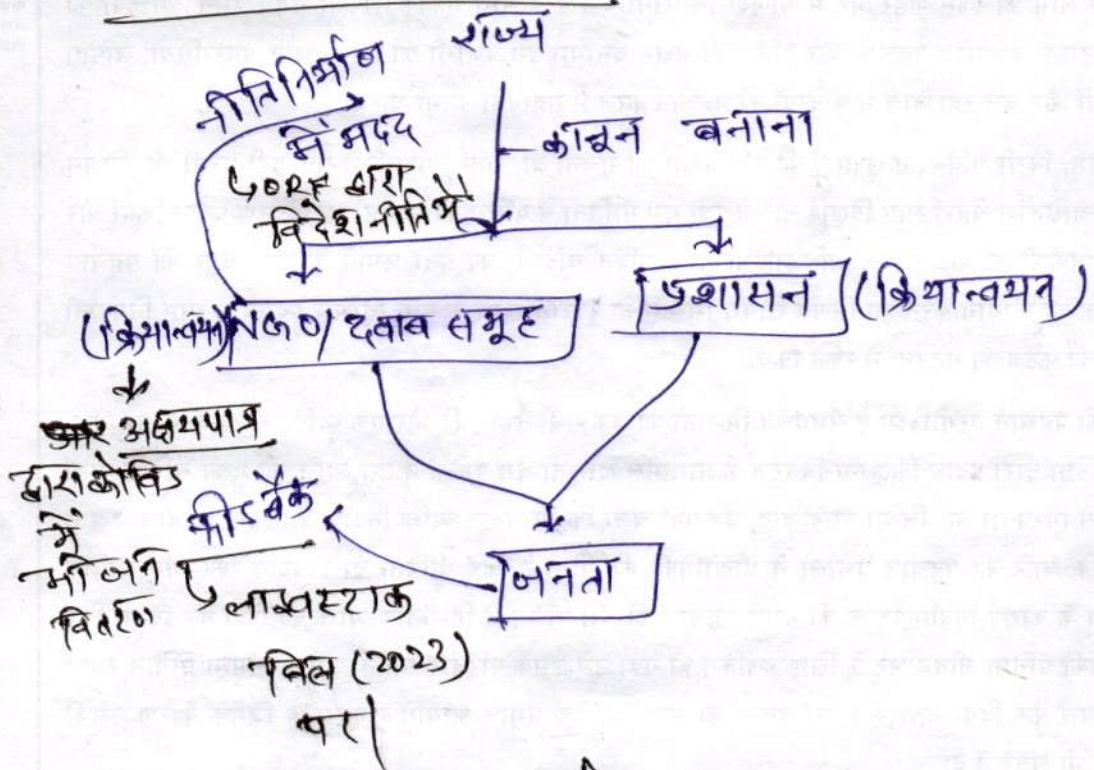 राज्य
नीतिनिर्माण
में मदद
कानून बनाना
ORF द्वारा
विदेशनीति में
(क्रियान्वयन) NGO/ दवाब समूह
प्रशासन (क्रियान्वयन)
अक्षयपात्र
द्वारा कोविड
में
भोजन
वितरण
फीडबैक
जनता
बिल (2023)
पर